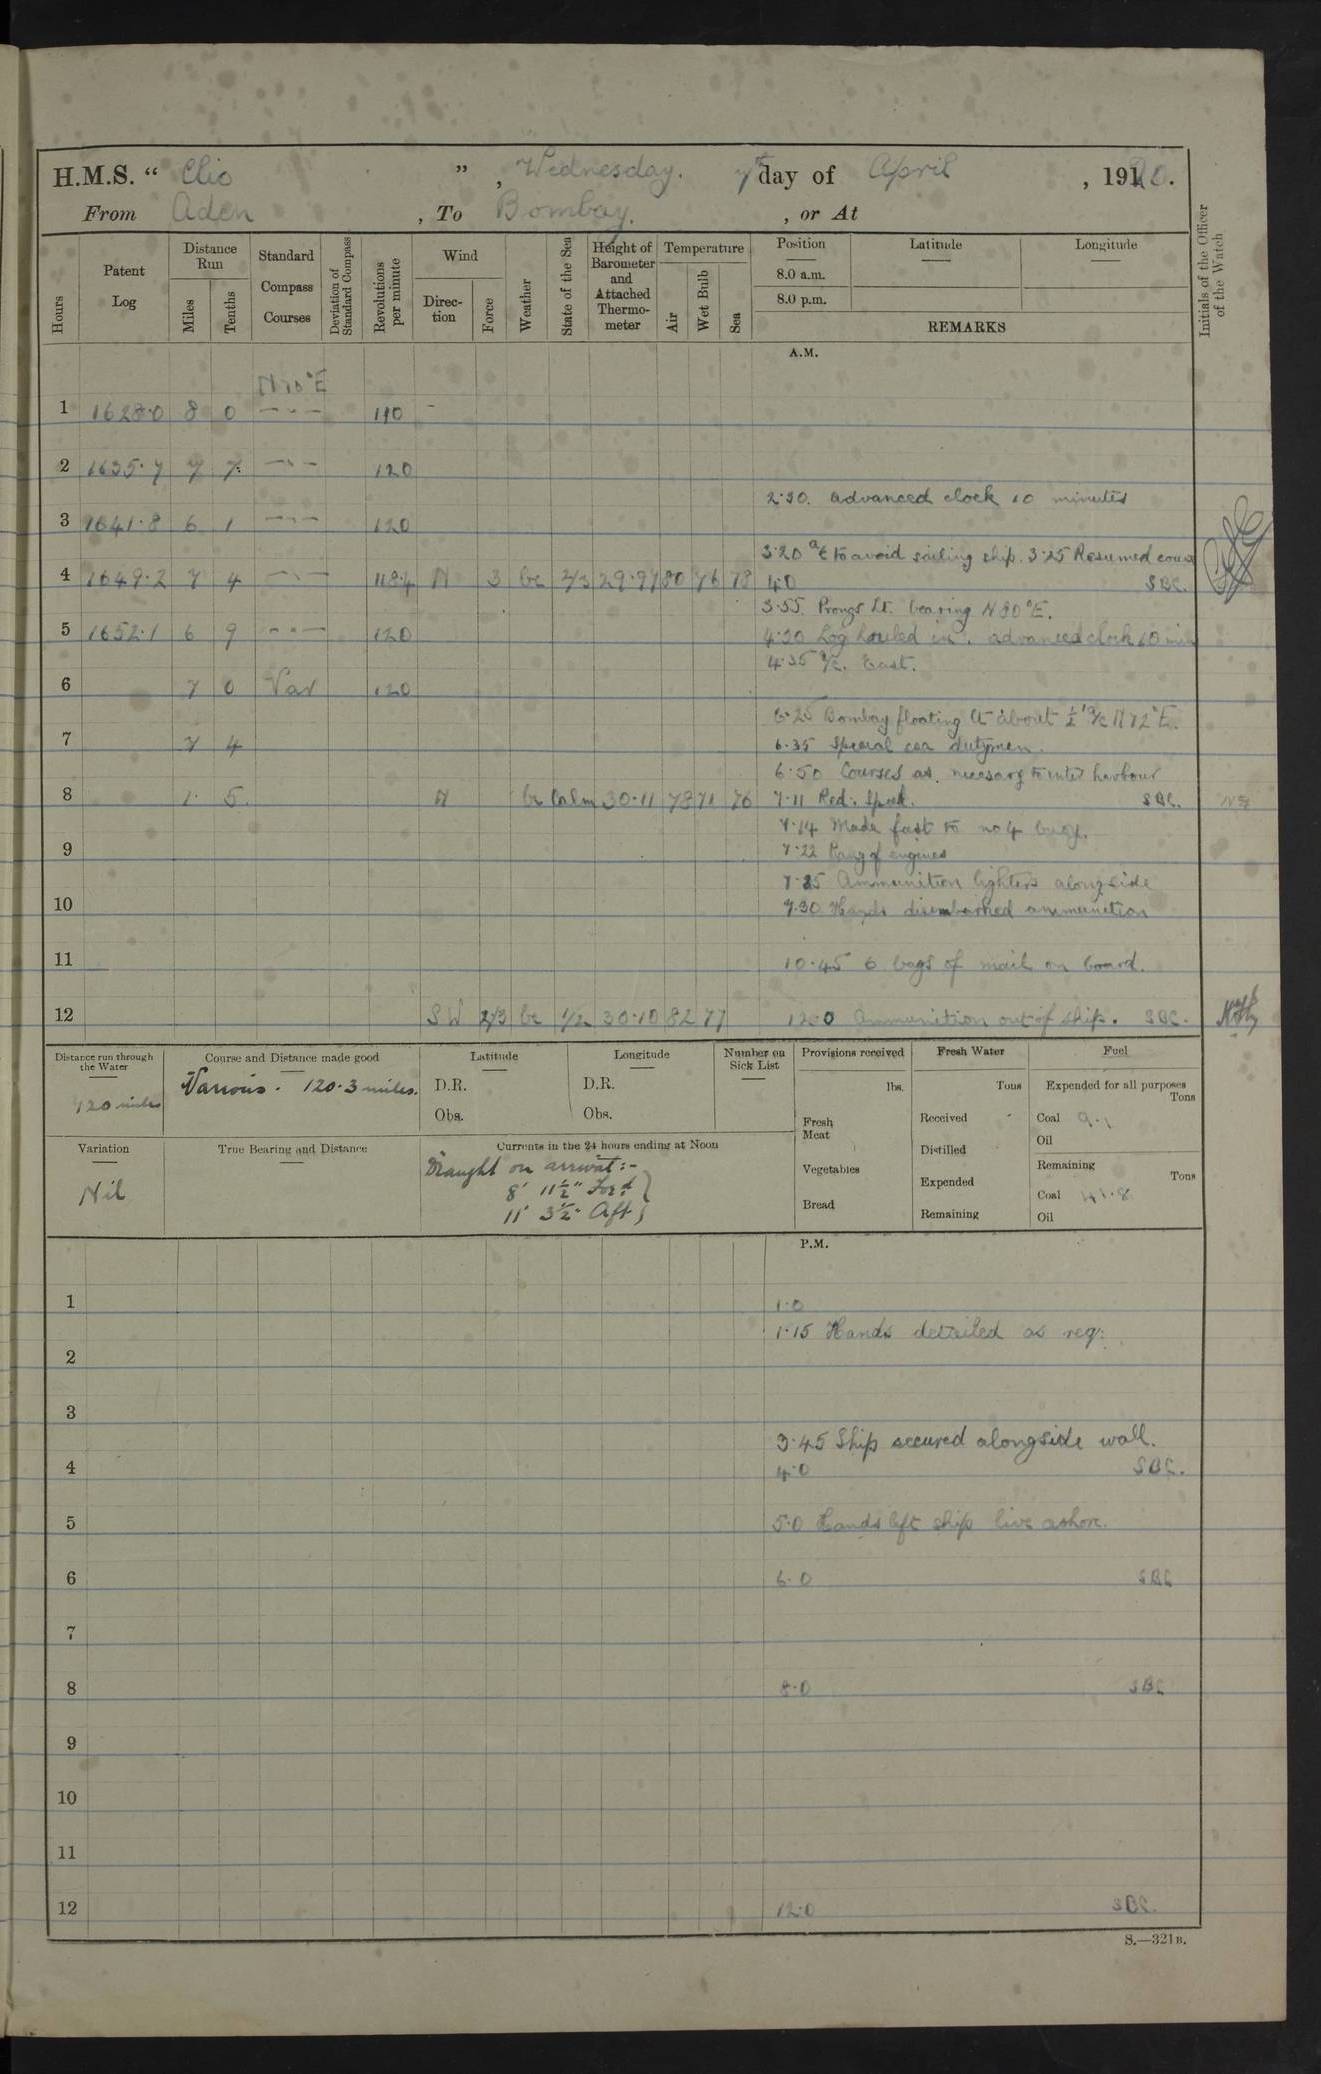 H.M.S. “ Clio ” , Wednesday. 7th day of April , 1920.
From Aden , To Bombay. , or At
Hours
Patent Log
Distance Run
Miles
Tenths
Standard Compass Courses
Deviation of Standard Compass
Revolutions per minute
Wind
Direction
Force
Weather
State of the Sea
Height of Barometer and Attached Thermometer
Temperature
Air
Wet Bulb
Sea
Position
8.0 a.m.
8.0 p.m.
Latitude
Longitude
REMARKS
Initials of the Officer of the Watch
A.M.
1 1628.0 8 0 110
2 1635.7 7 7 120
2.30. advanced clock 10 minutes
3 1641.8 6 1 120
3.20 a/c to avoid sailing ship. 3.25 Resumed course
4 1649.2 7 4 118.4 N 3 bc 2/3 29.97 80 76 78 4.0 SBC.
3.55 Prongs Lt. bearing N80°E.
5 1652.1 6 9 120 4.20 Log hauled in. advanced clock 10 min
4.35 a/c. East.
6 7 0 Var 120
6.25 Bombay floating Lt about ½' a/c N72°E.
7 7 4 6.35 Special sea dutymen.
6.50 Courses as necessary to enter harbour
8 1 5 N bc Calm 30.11 78 71 76 7.11 Red. Speed. SBC.
7.14 Made fast to no 4 buoy.
9 7.22 Rang off engines
7.25 Ammunition lighters alongside
10 7.30 Hands disembarked ammunition
11 10.45 6 bags of mail on board.
12 SW 2/3 bc 1/2 30.10 82 77 12.0 Ammunition out of ship. SBC.
Distance run through the Water
120 miles
Course and Distance made good
Various. 120.3 miles.
Latitude
D.R.
Obs.
Longitude
D.R.
Obs.
Number on Sick List
Provisions received
lbs.
Fresh Meat
Vegetables
Bread
Fresh Water
Tons
Received
Distilled
Expended
Remaining
Fuel
Expended for all purposes
Tons
Coal 9.1
Oil
Remaining
Tons
Coal 41.8
Oil
Variation
Nil
True Bearing and Distance
Currents in the 24 hours ending at Noon
Draught on arrival:-
8' 11½" For'd
11' 3½" Aft
P.M.
1 1.0
1.15 Hands detailed as req:
2
3
3.45 Ship secured alongside wall.
4 4.0 SBC.
5 5.0 Hands left ship live ashore.
6 6.0 SBC
7
8 8.0 SBC
9
10
11
12 12.0 SBC.
S.—321B.